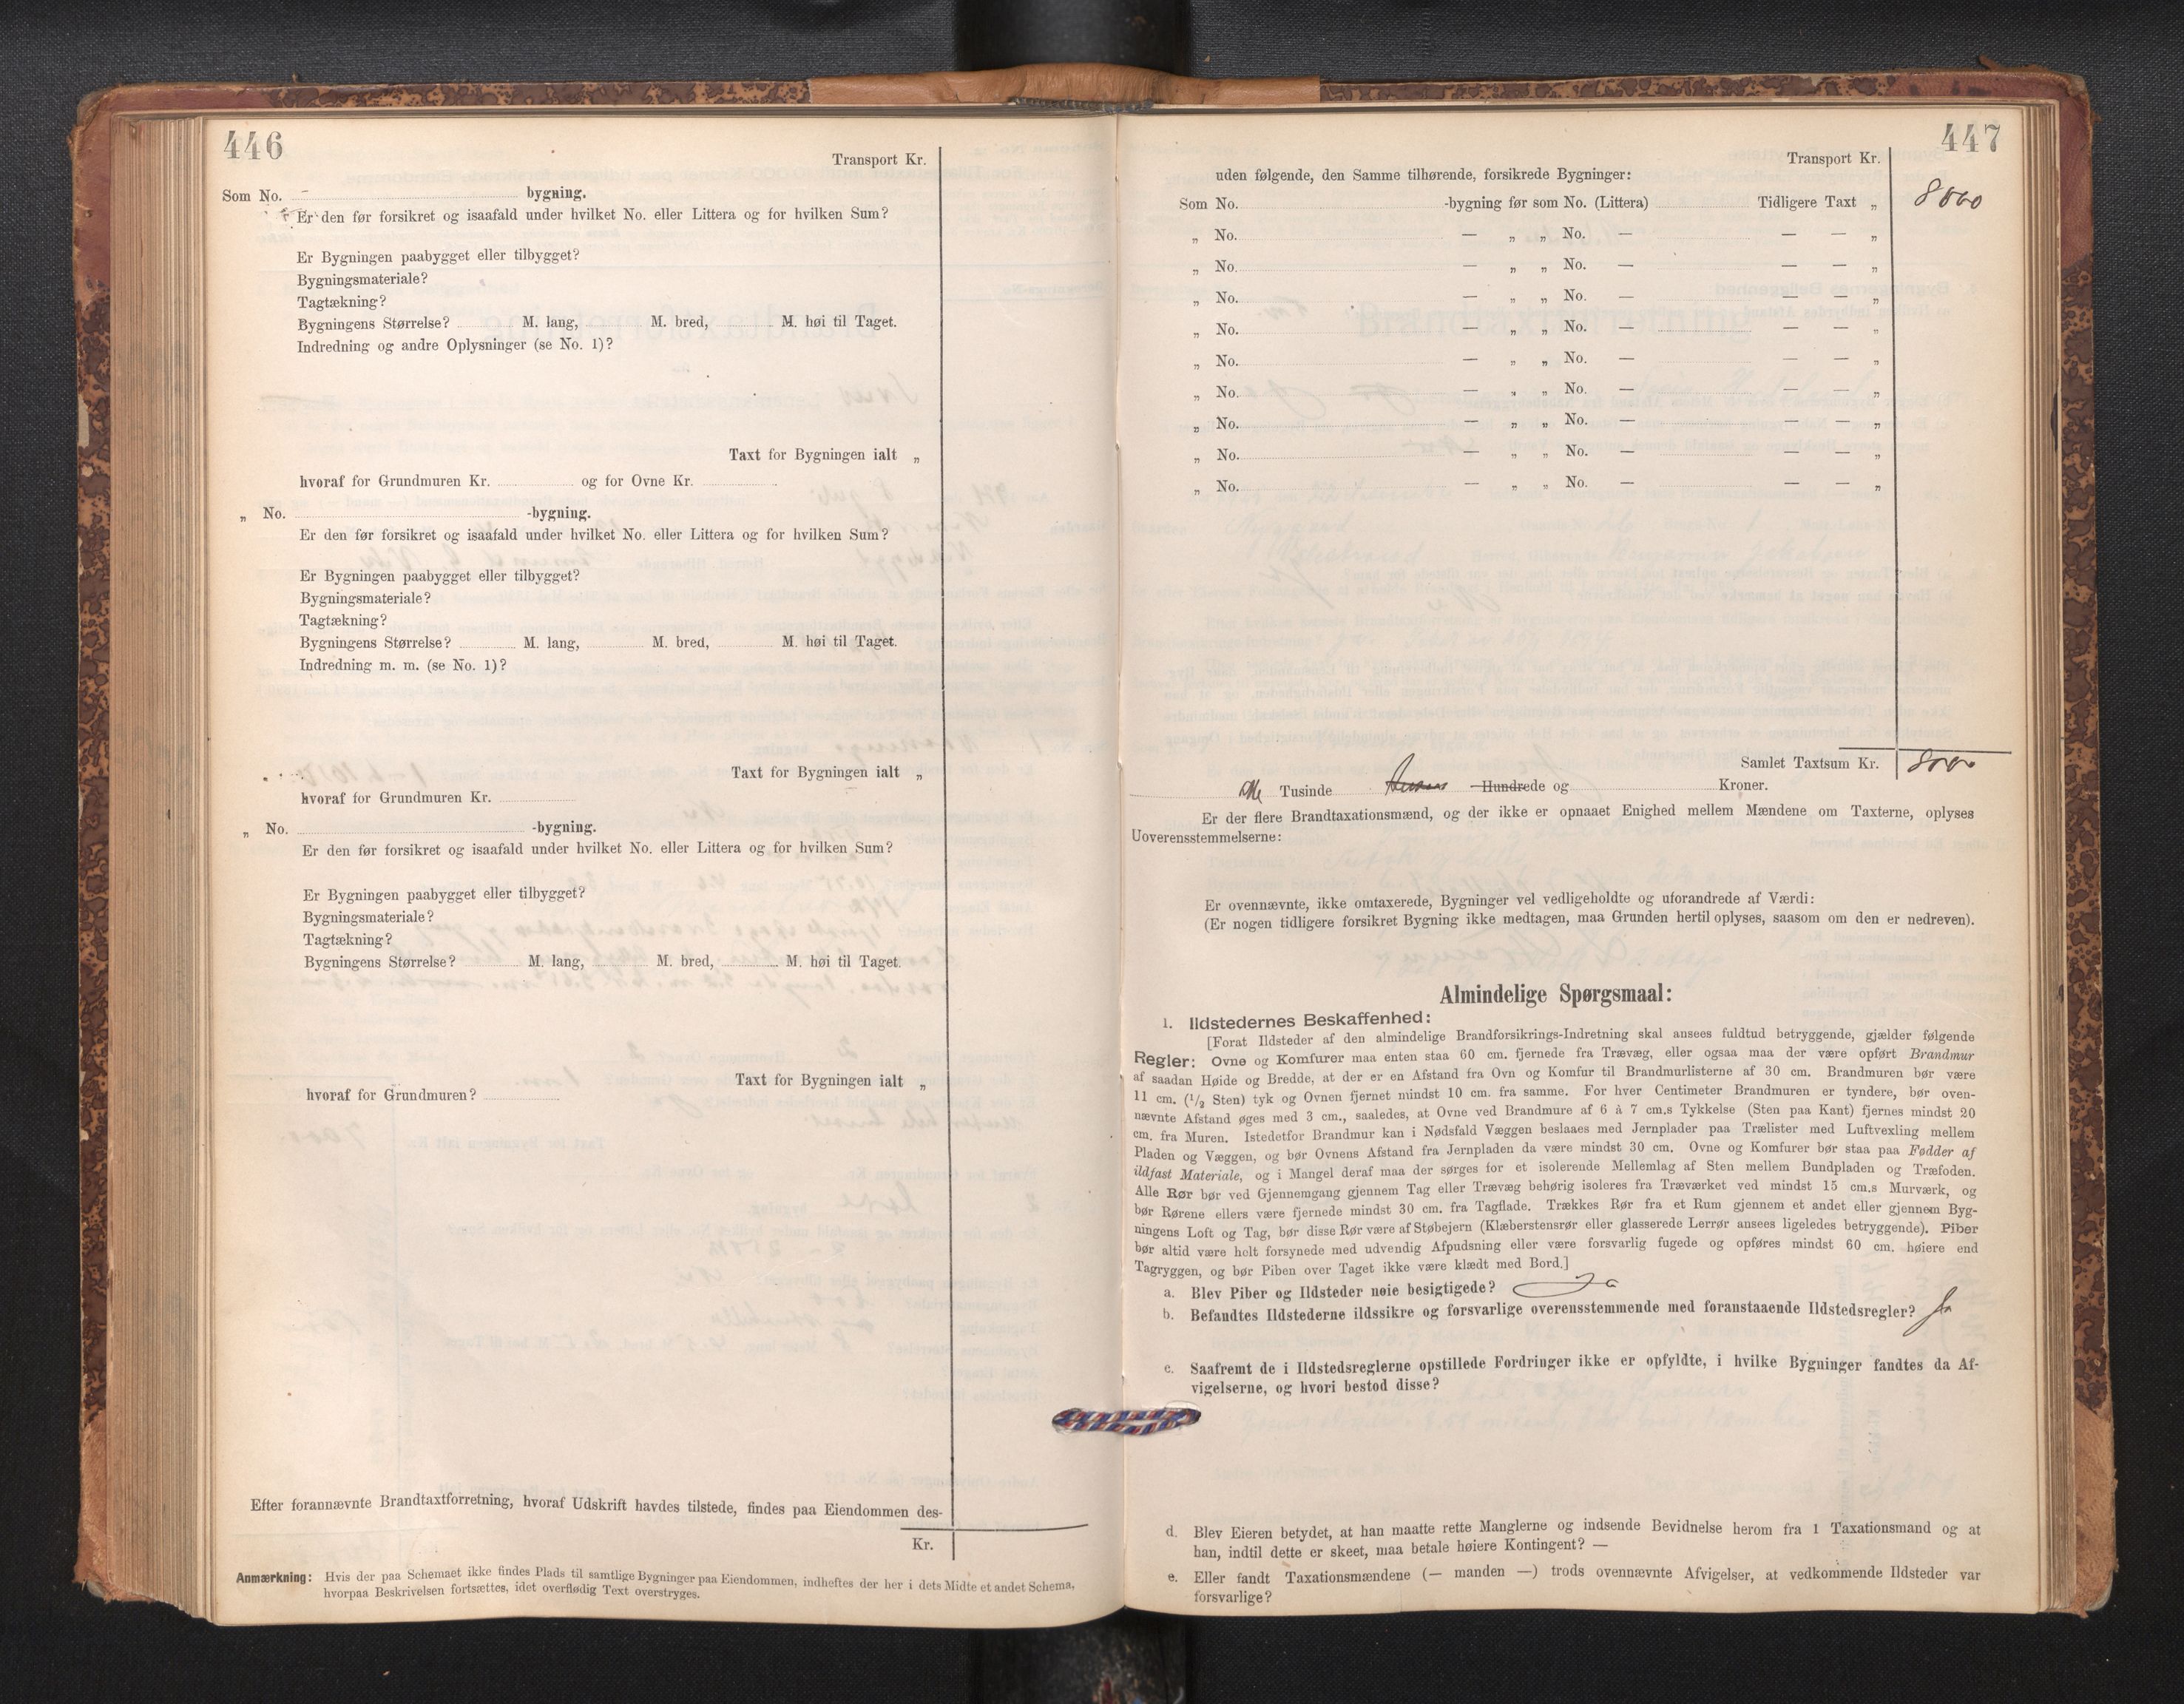 446
Transport Kr.
Som No. bygning.
Er den før forsikret og isaafald under hvilket No. eller Littera og for hvilken Sum?
Er Bygningen paabygget eller tilbygget?
Bygningsmateriale?
Tagtækning?
Bygningens Størrelse? M. lang, M. bred, M. høi til Taget.
Indredning og andre Oplysninger (se No. 1)?
Taxt for Bygningen ialt „
hvoraf for Grundmuren Kr. og for Ovne Kr.
„ No. -bygning.
Er den før forsikret og isaafald under hvilket No. eller Littera og for hvilken Sum?
Er Bygningen paabygget eller tilbygget?
Bygningsmateriale?
Tagtækning?
Bygningens Størrelse? M. lang, M. bred, M. høi til Taget.
Indredning m. m. (se No. 1)?
Taxt for Bygningen ialt „
hvoraf for Grundmuren Kr.
„ No. -bygning.
Er den før forsikret og isaafald under hvilket No. eller Littera og for hvilken Sum?
Er Bygningen paabygget eller tilbygget?
Bygningsmateriale?
Tagtækning?
Bygningens Størrelse? M. lang, M. bred, M. høi til Taget.
Taxt for Bygningen ialt „
hvoraf for Grundmuren?
Efter forannævnte Brandtaxtforretning, hvoraf Udskrift havdes tilstede, findes paa Eiendommen des-
Kr.
Anmærkning: Hvis der paa Schemaet ikke findes Plads til samtlige Bygninger paa Eiendommen, indheftes der her i dets Midte et andet Schema,
hvorpaa Beskrivelsen fortsættes, idet overflødig Text overstryges.
447
Transport Kr.
uden følgende, den Samme tilhørende, forsikrede Bygninger:
Som No. -bygning før som No. (Littera) Tidligere Taxt „ 8000
„ No. — „ „ No. — — — „
„ No. — „ „ No. — — — „
„ No. — „ „ No. — — — „
„ No. — „ „ No. — — — „
„ No. — „ „ No. — — — „
„ No. — „ „ No. — — — „
„ No. — „ „ No. — — — „
„ No. — „ „ No. — — — „
„ No. — „ „ No. — — — „
Samlet Taxtsum Kr. 8000
Tusinde Hundrede og Kroner.
Er der flere Brandtaxationsmænd, og der ikke er opnaaet Enighed mellem Mændene om Taxterne, oplyses
Uoverensstemmelserne:
Er ovennævnte, ikke omtaxerede, Bygninger vel vedligeholdte og uforandrede af Værdi:
(Er nogen tidligere forsikret Bygning ikke medtagen, maa Grunden hertil oplyses, saasom om den er nedreven).
Almindelige Spørgsmaal:
1. Ildstedernes Beskaffenhed:
[Forat Ildsteder af den almindelige Brandforsikrings-Indretning skal ansees fuldtud betryggende, gjælder følgende
Regler: Ovne og Komfurer maa enten staa 60 cm. fjernede fra Trævæg, eller ogsaa maa der være opført Brandmur
af saadan Høide og Bredde, at der er en Afstand fra Ovn og Komfur til Brandmurlisterne af 30 cm. Brandmuren bør være
11 cm. (1/2 Sten) tyk og Ovnen fjernet mindst 10 cm. fra samme. For hver Centimeter Brandmuren er tyndere, bør oven-
nævnte Afstand øges med 3 cm., saaledes, at Ovne ved Brandmure af 6 à 7 cm.s Tykkelse (Sten paa Kant) fjernes mindst 20
cm. fra Muren. Istedetfor Brandmur kan i Nødsfald Væggen beslaaes med Jernplader paa Trælister med Luftvexling mellem
Pladen og Væggen, og bør Ovnens Afstand fra Jernpladen da være mindst 30 cm. Ovne og Komfurer bør staa paa Fødder af
ildfast Materiale, og i Mangel deraf maa der sørges for et isolerende Mellemlag af Sten mellem Bundpladen og Træfoden.
Alle Rør bør ved Gjennemgang gjennem Tag eller Trævæg behørig isoleres fra Træværket ved mindst 15 cm.s Murværk, og
bør Rørene ellers være fjernede mindst 30 cm. fra Tagflade. Trækkes Rør fra et Rum gjennem et andet eller gjennem Byg-
ningens Loft og Tag, bør disse Rør være af Støbejern (Klæberstensrør eller glasserede Lerrør ansees ligeledes betryggende). Piber
bør altid være helt forsynede med udvendig Afpudsning eller være forsvarlig fugede og opføres mindst 60 cm. høiere end
Tagryggen, og bør Piben over Taget ikke være klædt med Bord.]
a. Blev Piber og Ildsteder nøie besigtigede? Ja
b. Befandtes Ildstederne ildssikre og forsvarlige overensstemmende med foranstaaende Ildstedsregler? Ja
c. Saafremt de i Ildstedsreglerne opstillede Fordringer ikke er opfyldte, i hvilke Bygninger fandtes da Af-
vigelserne, og hvori bestod disse?
d. Blev Eieren betydet, at han maatte rette Manglerne og indsende Bevidnelse herom fra 1 Taxationsmand og at
han, indtil dette er skeet, maa betale høiere Kontingent? —
e. Eller fandt Taxationsmændene (— manden —) trods ovennævnte Afvigelser, at vedkommende Ildsteder var
forsvarlige?